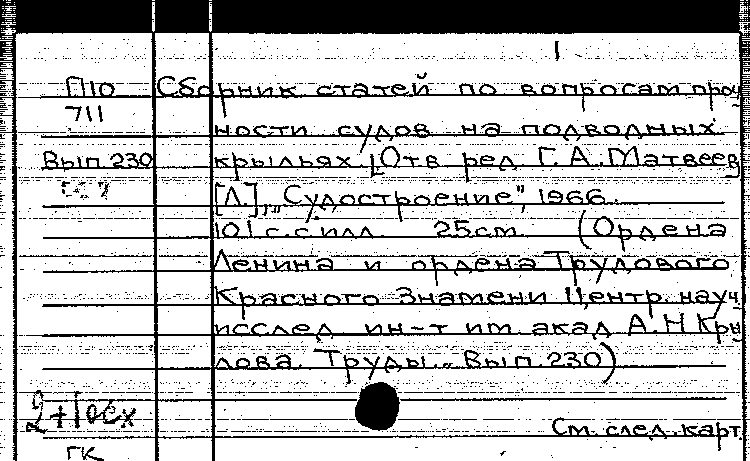 1
П10 Сборник статей по вопросам проч
711
ности судов на подводных
Вып.230 крыльях. [Отв ред. Г. А. Матвеев]
[Л.], „Судостроение", 1966.
101 с. с илл. 25см. (Ордена
Ленина и ордена Трудового
Красного Знамени Центр. науч
исслед ин-т им. акад А. Н Кры
лова. Труды. Вып. 230)
См. след. карт
ГК